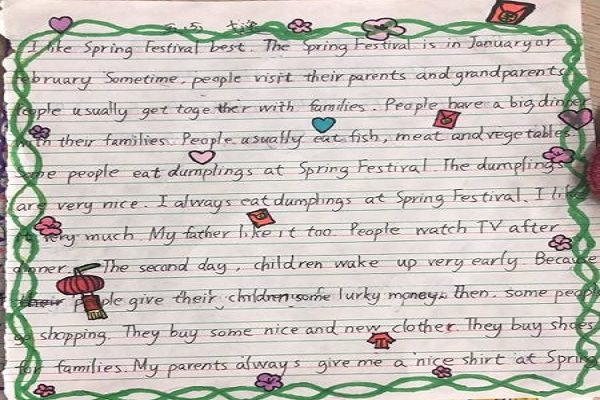 I like Spring Festival best. The Spring Festival is in January or
February Sometime, people visit their parents and grandparents
people usually get together with families. People have a big dinner
with their families. People usually eat fish, meat and vegetables.
Some people eat dumplings at Spring Festival. The dumplings
are very nice. I always eat dumplings at Spring Festival. I like
it very much. My father like it too. People watch TV after
dinner. The second day, children wake up very early. Because
their people give their children some lurky money. Then, some people
go shopping. They buy some nice and new clother. They buy shoes
for families. My parents always give me a nice shirt at Spring